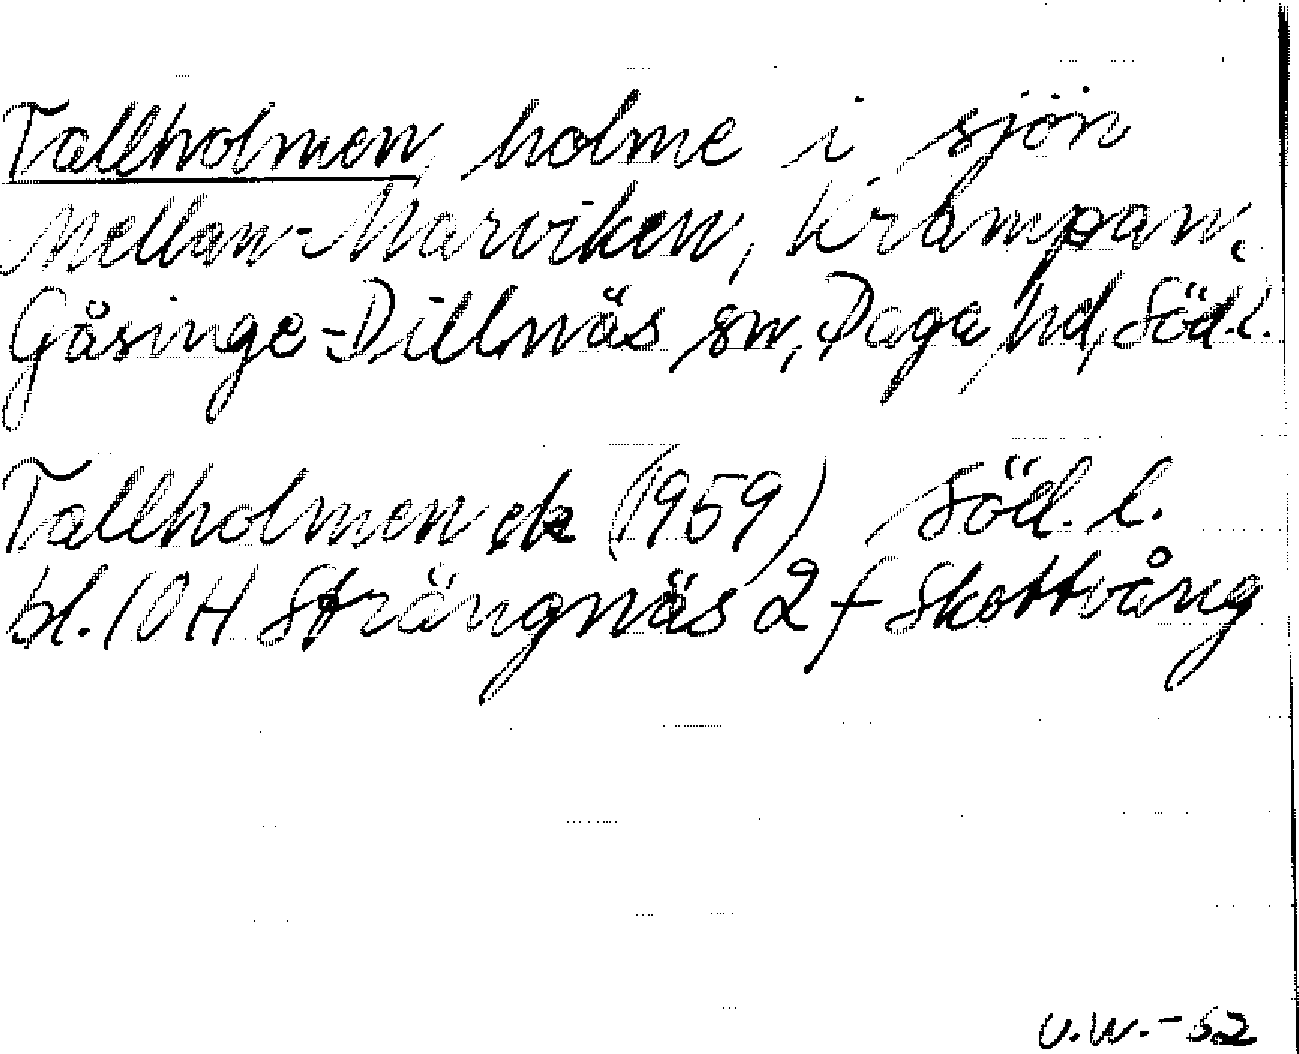 Tallholmen, holme i sjön
Mellan-Marviken, Krampan,
Gåsinge-Dillnäs sn, Daga hd, Söd.l.
Tallholmen ek (1959) Söd. l.
bl. 10H Strängnäs 2f Skottvång
U.W.-52